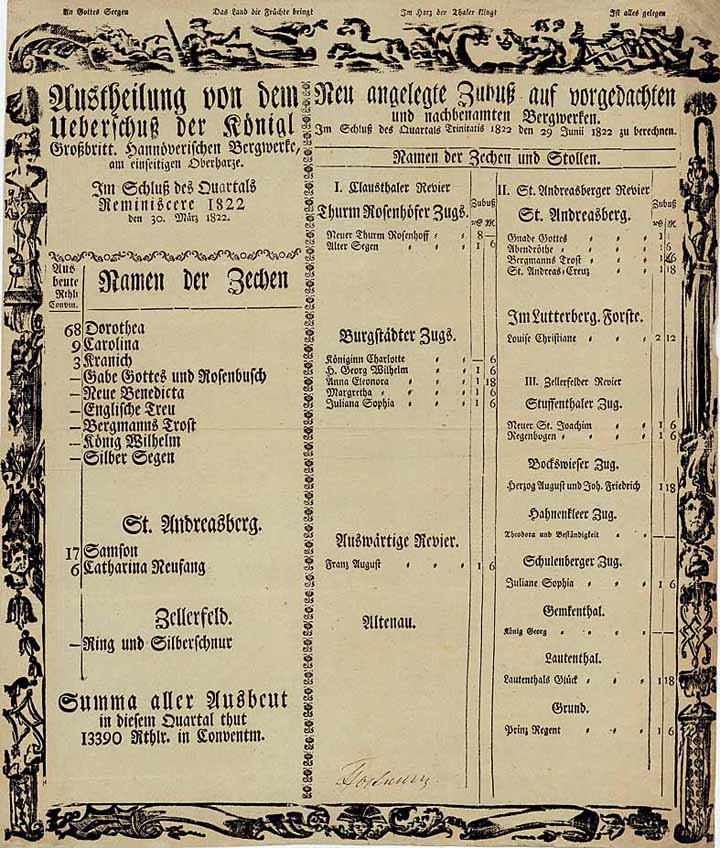 An Gottes Seegen Das Land die Früchte bringt Im Harz der Thaler klingt Ist alles gelegen
Austheilung von dem
Ueberschuß der Königl
Großbritt. Hannöverischen Bergwerke,
am einseitigen Oberharze.
Im Schluß des Quartals
Reminiscere 1822
den 30. März 1822.
Aus
beute
Rthlr
Convm.
Namen der Zechen
68 Dorothea
9 Carolina
3 Kranich
— Gabe Gottes und Rosenbusch
— Neue Benedicta
— Englische Treu
— Bergmanns Trost
— König Wilhelm
— Silber Segen
St. Andreasberg.
17 Samson
6 Catharina Neufang
Zellerfeld.
— Ring und Silberschnur
Summa aller Ausbeut
in diesem Quartal thut
13390 Rthlr. in Conventm.
Neu angelegte Zubuß auf vorgedachten
und nachbenamten Bergwerken.
Im Schluß des Quartals Trinitatis 1822 den 29 Junii 1822 zu berechnen.
Namen der Zechen und Stollen.
I. Clausthaler Revier
Zubuß
Thurm Rosenhöfer Zugs.
Neuer Thurm Rosenhoff 8 —
Alter Segen 1 6
Burgstädter Zugs.
Königinn Charlotte — 6
H. Georg Wilhelm 1 6
Anna Eleonora 1 18
Margretha 1 6
Juliana Sophia 1 6
Auswärtige Revier.
Franz August 1 6
Altenau.
II. St. Andreasberger Revier
Zubuß
St. Andreasberg.
Gnade Gottes 1
Abendröthe 1 6
Bergmanns Trost 1
St. Andreas-Creuz 1 18
Im Lutterberg. Forste.
Louise Christiane 2 12
III. Zellerfelder Revier
Stuffenthaler Zug.
Neuer St. Joachim 1 6
Regenbogen 1 6
Bockswieser Zug.
Herzog August und Joh. Friedrich 1 18
Hahnenkleer Zug.
Theodora und Beständigkeit — —
Schulenberger Zug.
Juliane Sophia 1 6
Gemkenthal.
König Georg — —
Lautenthal.
Lautenthals Glück 1 18
Grund.
Prinz Regent 1 6